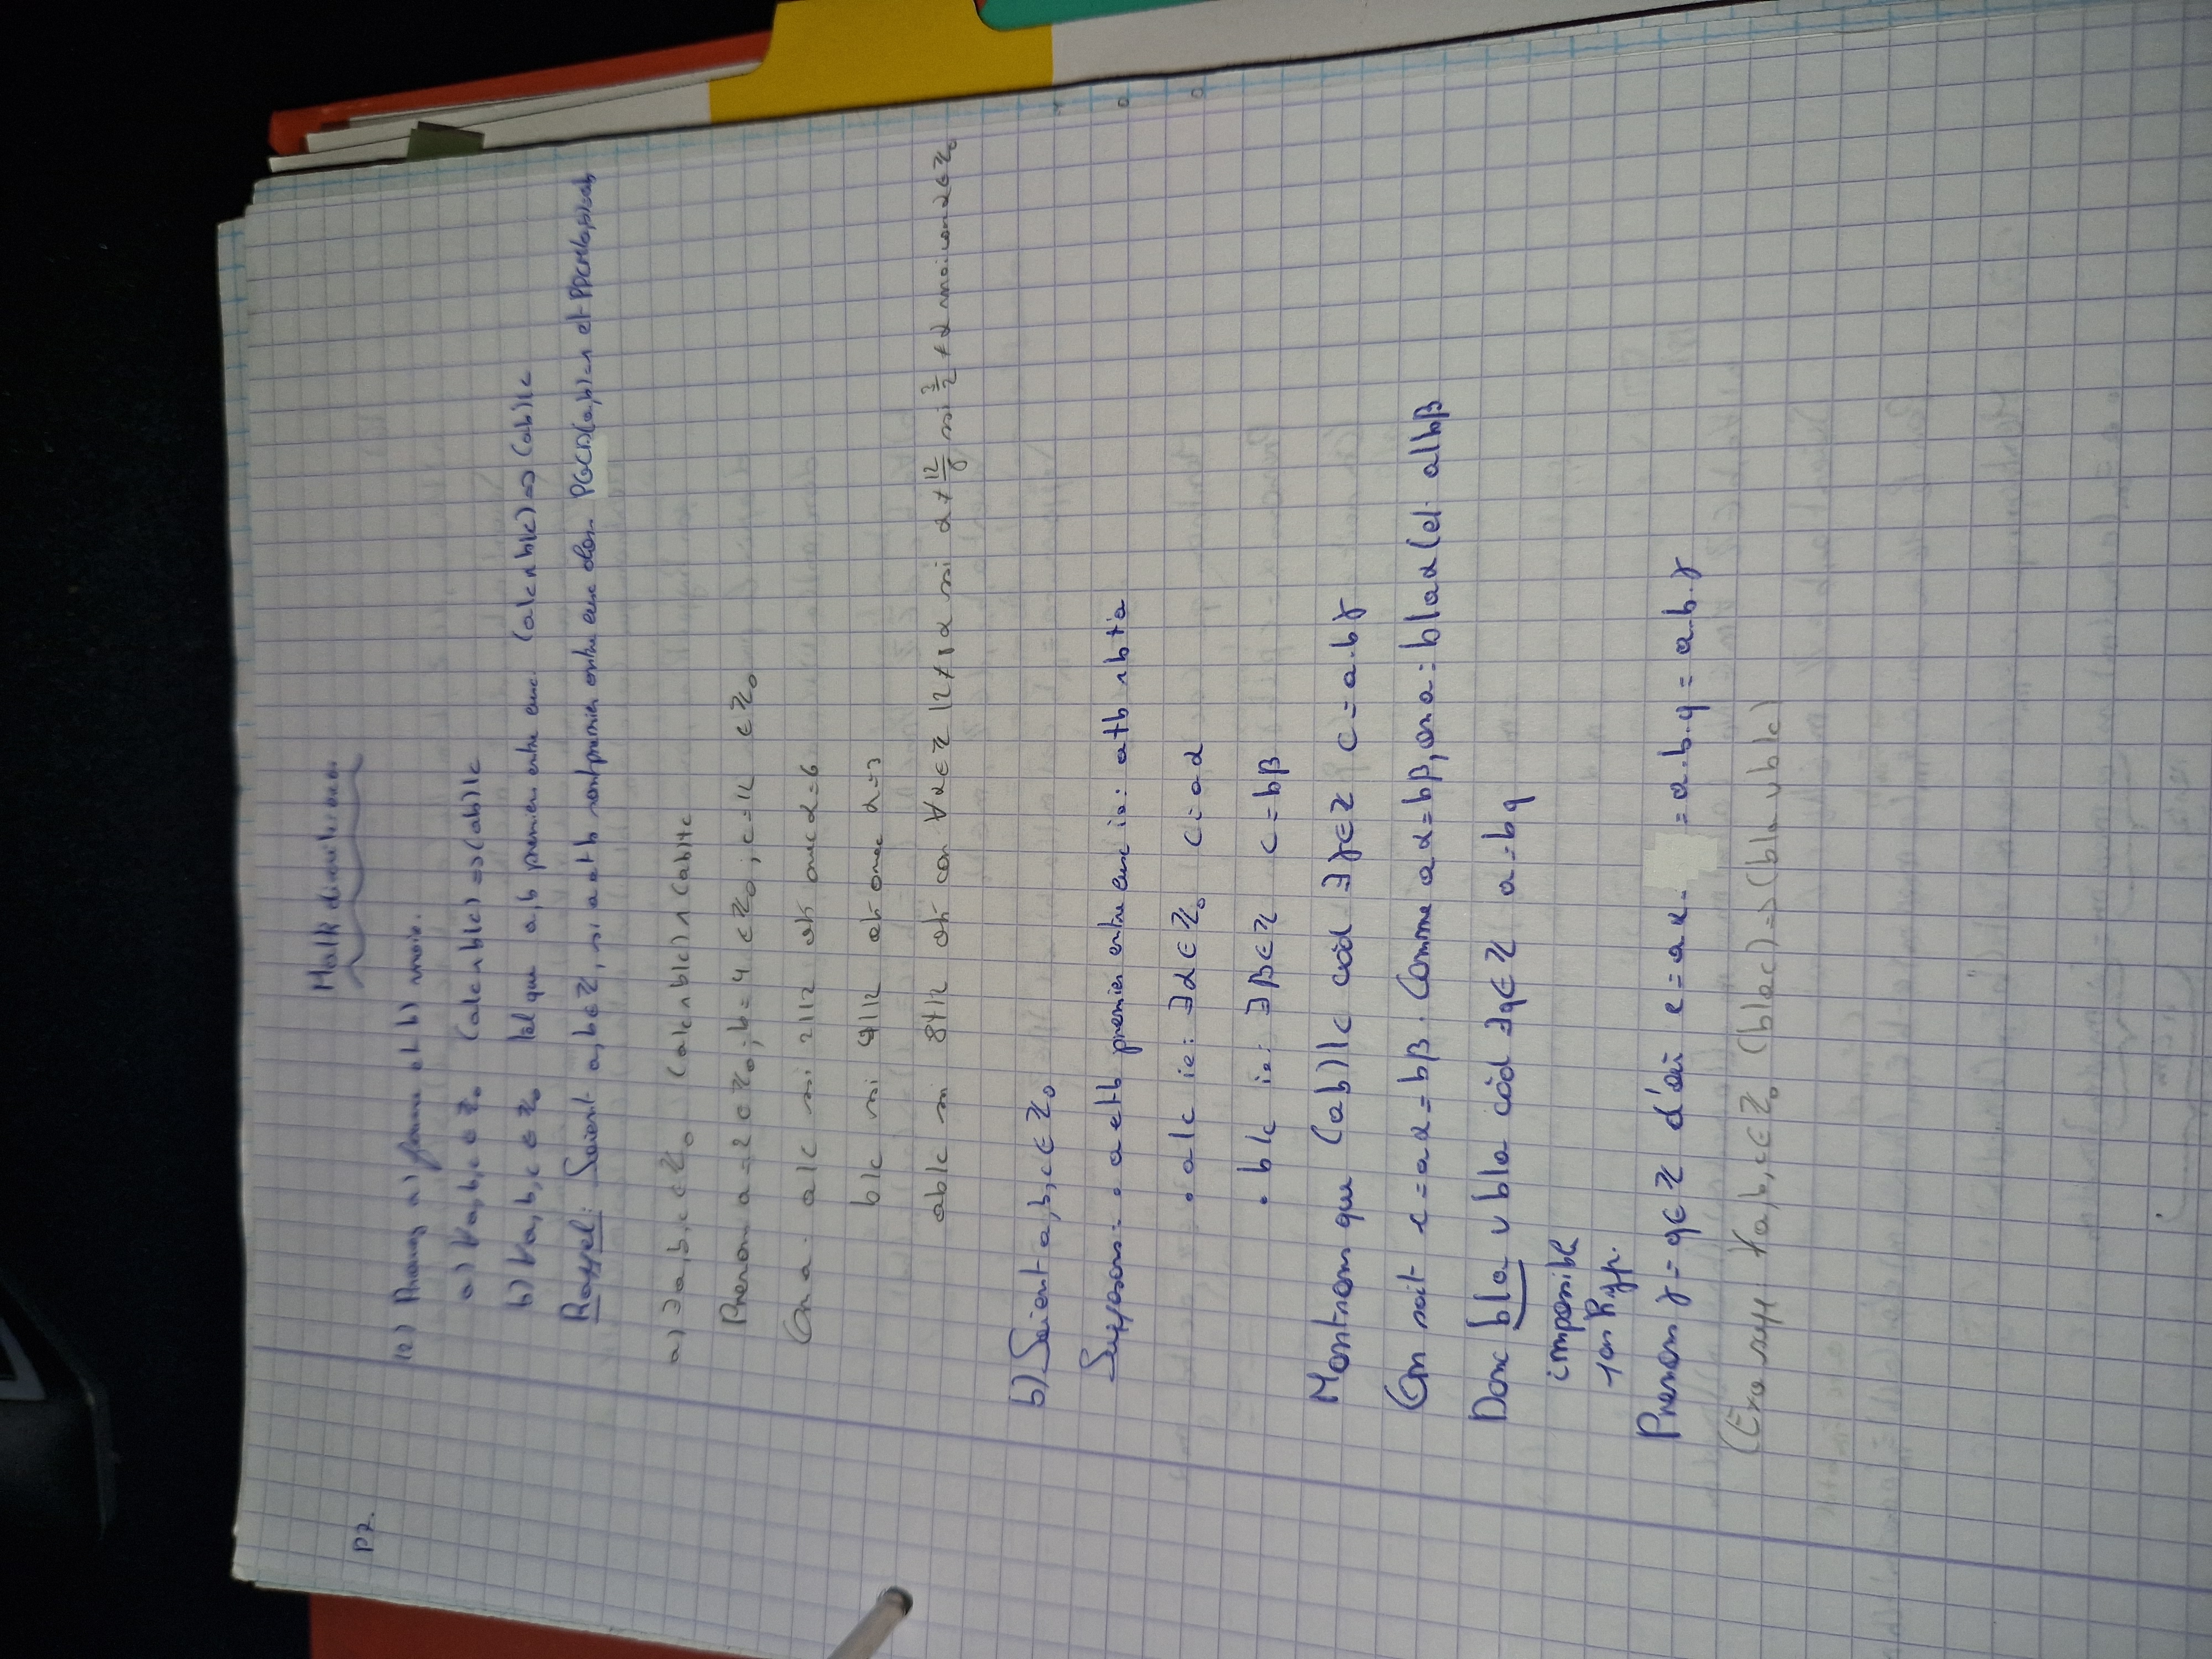 Math discrètes
P7.
12) Prouvez a) fausse et b) vraie.
a) ∀a,b,c ∈ ℤ₀ (a|c ∧ b|c) => (ab)|c
b) ∀a,b,c ∈ ℤ₀ tel que a,b premiers entre eux. (a|c ∧ b|c) => (ab)|c
Rappel: Soient a,b ∈ ℤ, si a et b sont premier entre eux alors PGCD(a,b)=1 et PPCM(a,b)=ab
a) ∃a,b,c ∈ ℤ₀ (a|c ∧ b|c) ∧ (ab)∤c
Prenons a = 2 ∈ ℤ₀ ; b = 4 ∈ ℤ₀ ; c = 12 ∈ ℤ₀
On a : a|c ssi 2|12 ok avec α = 6
b|c ssi 4|12 ok avec α = 3
ab|c ssi 8∤12 ok car ∀α ∈ ℤ 12 ≠ 8α ssi α ≠ 12/8 ssi 3/2 ≠ α vrai car α ∈ ℤ₀
b) Soient a,b,c ∈ ℤ₀
Supposons : • a et b premier entre eux ie: a∤b ∧ b∤a
• a|c ie: ∃α ∈ ℤ₀ c = aα
• b|c ie: ∃β ∈ ℤ c = bβ
Montrons que (ab)|c càd ∃γ ∈ ℤ c = a.bγ
On sait c = aα = bβ. Comme aα = bβ, on a : b|aα (et a|bβ
Donc b|a ∨ b|α càd ∃q ∈ ℤ a = bq
impossible
par hyp.
Prenons γ = q ∈ ℤ d'où c = aα. = a.b.q = a.b.γ
(Exo supp. ∀a,b,c ∈ ℤ₀ (b|ac) => (b|a ∨ b|c)